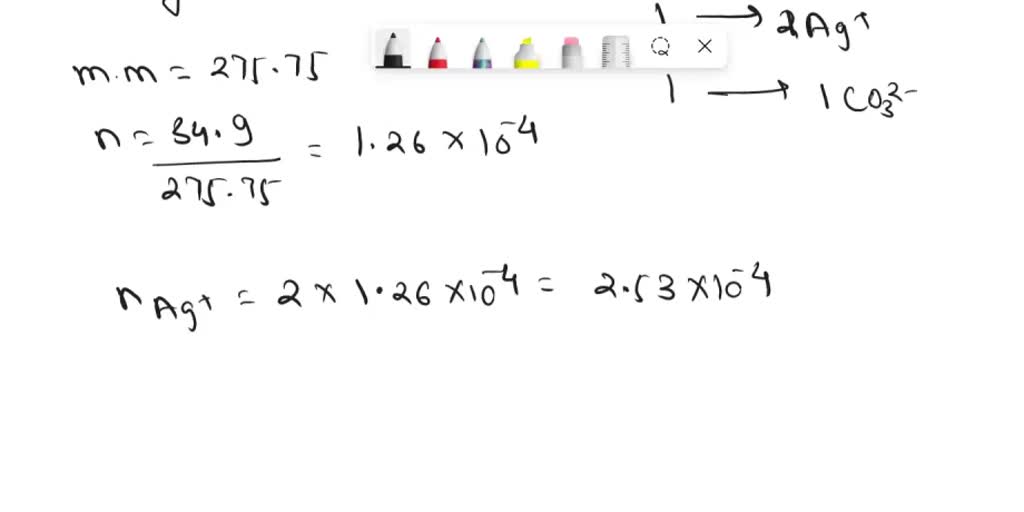 1 → 2Ag+
m.m = 275.75
1 → 1 CO₃²⁻
n = 34.9 / 275.75 = 1.26 × 10⁻⁴
n Ag+ = 2 × 1.26 × 10⁻⁴ = 2.53 × 10⁻⁴